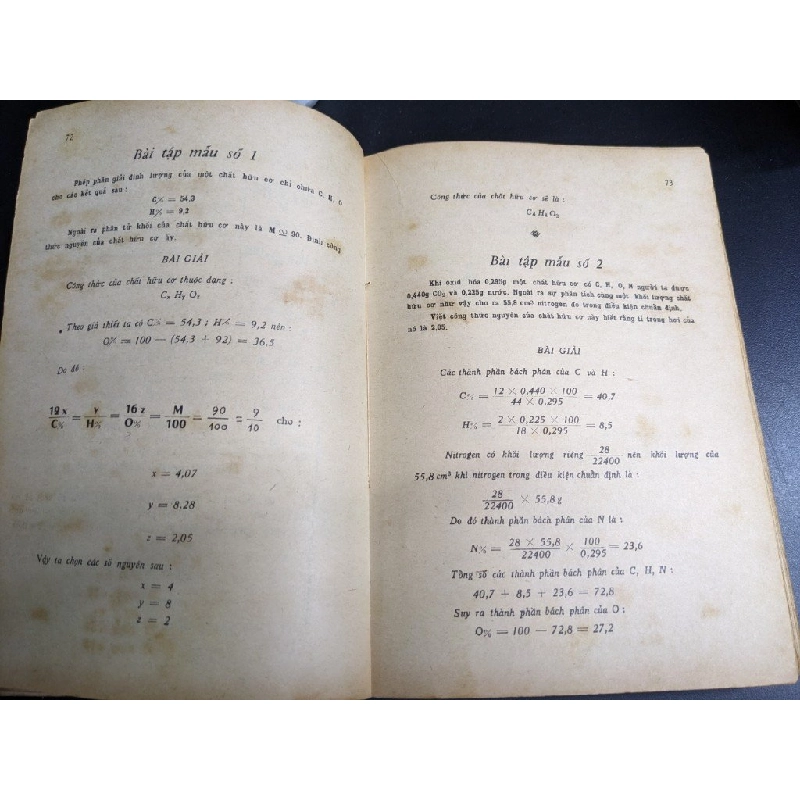 72
Bài tập mẫu số 1
Phép phân giải định lượng của một chất hữu cơ chỉ chứa C, H, O
cho các kết quả sau :
C% = 54,3
H% = 9,2
Ngoài ra phân tử khối của chất hữu cơ này là M = 90. Định công
thức nguyên của chất hữu cơ ấy.
BÀI GIẢI
Công thức của chất hữu cơ thuộc dạng :
Cx Hy Oz
Theo giả thiết ta có C% = 54,3 ; H% = 9,2 nên :
O% = 100 — (54,3 + 92) = 36,5
Do đó
12 x / C% = y / H% = 16 z / O% = M / 100 = 90 / 100 = 9 / 10 cho :
x = 4,07
y = 8,28
z = 2,05
Vậy ta chọn các số nguyên sau :
x = 4
y = 8
z = 2
73
Công thức của chất hữu cơ sẽ là :
C4 H8 O2
Bài tập mẫu số 2
Khi oxid hóa 0,295g một chất hữu cơ có C, H, O, N người ta được
0,440g CO2 và 0,225g nước. Ngoài ra sự phân tích cùng một khối lượng chất
hữu cơ như vậy cho ra 55,8 cm3 nitrogen đo trong điều kiện chuẩn định.
Viết công thức nguyên của chất hữu cơ này biết rằng tỉ trọng hơi của
nó là 2,05.
BÀI GIẢI
Các thành phần bách phân của C và H :
C% = 12 × 0,440 × 100 / 44 × 0,295 = 40,7
H% = 2 × 0,225 × 100 / 18 × 0,295 = 8,5
Nitrogen có khối lượng riêng 28 / 22400 nên khối lượng của
55,8 cm³ khí nitrogen trong điều kiện chuẩn định là :
28 / 22400 × 55,8 g
Do đó thành phần bách phân của N là :
N% = 28 × 55,8 / 22400 × 100 / 0,295 = 23,6
Tổng số các thành phần bách phân của C, H, N :
40,7 + 8,5 + 23,6 = 72,8
Suy ra thành phần bách phân của O :
O% = 100 — 72,8 = 27,2